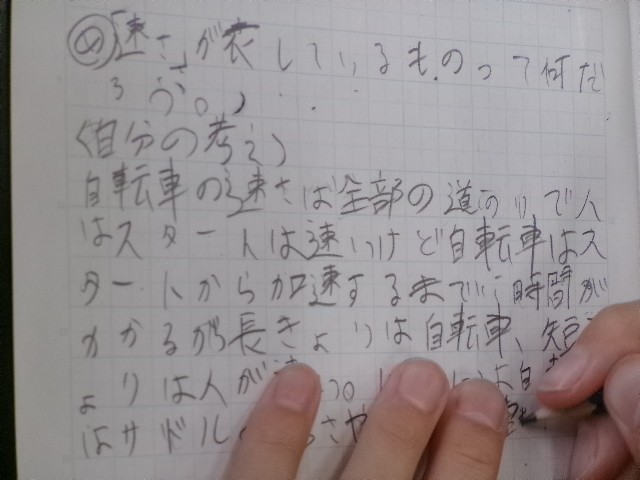 め「速さ」が表しているものって何だ
ろう。
〈自分の考え〉
自転車の速さは全部の道のりで人
はスタートは速いけど自転車はス
タートから加速するまでに時間が
かかるが長きょりは自転車、短
よりは人が
はサドル